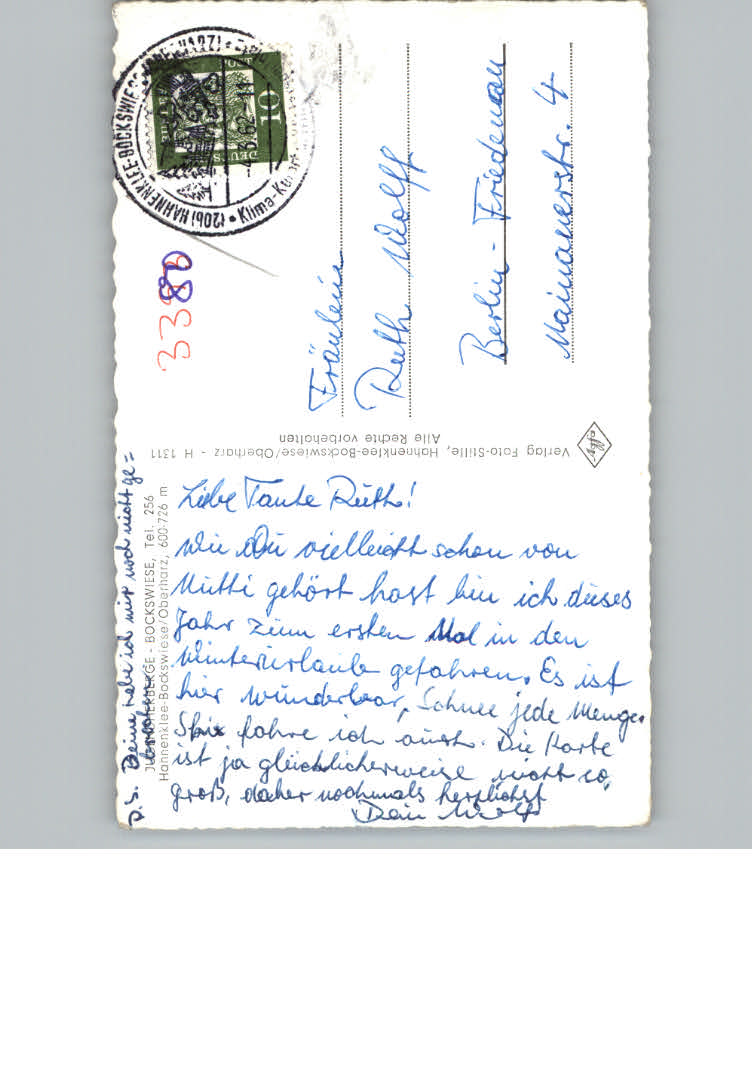 Liebe Tante Ruth!
Wie Du vielleicht schon von
Mutti gehört hast bin ich dieses
Jahr zum ersten Mal in den
Winterurlaub gefahren. Es ist
hier wunderbar, Schnee jede Menge.
Ski fahre ich auch. Die Karte
ist ja glücklicherweise nicht so
groß, daher nochmals herzlichst
Dein Wolf
P.S. Beine habe ich mir noch nicht ge=
brochen
JUGENDHERBERGE - BOCKSWIESE, Tel. 256
Hahnenklee-Bockswiese/Oberharz, 600-726 m
Verlag Foto-Stille, Hahnenklee-Bockswiese/Oberharz - H 1311
Alle Rechte vorbehalten
Fräulein
Ruth Wolff
Berlin-Friedenau
Mainauerstr. 4
33
80
(20b) HAHNENKLEE-BOCKSWIESE
(OBERHARZ)
62
Klima-Kurort
10
DEUTSCHE
POST